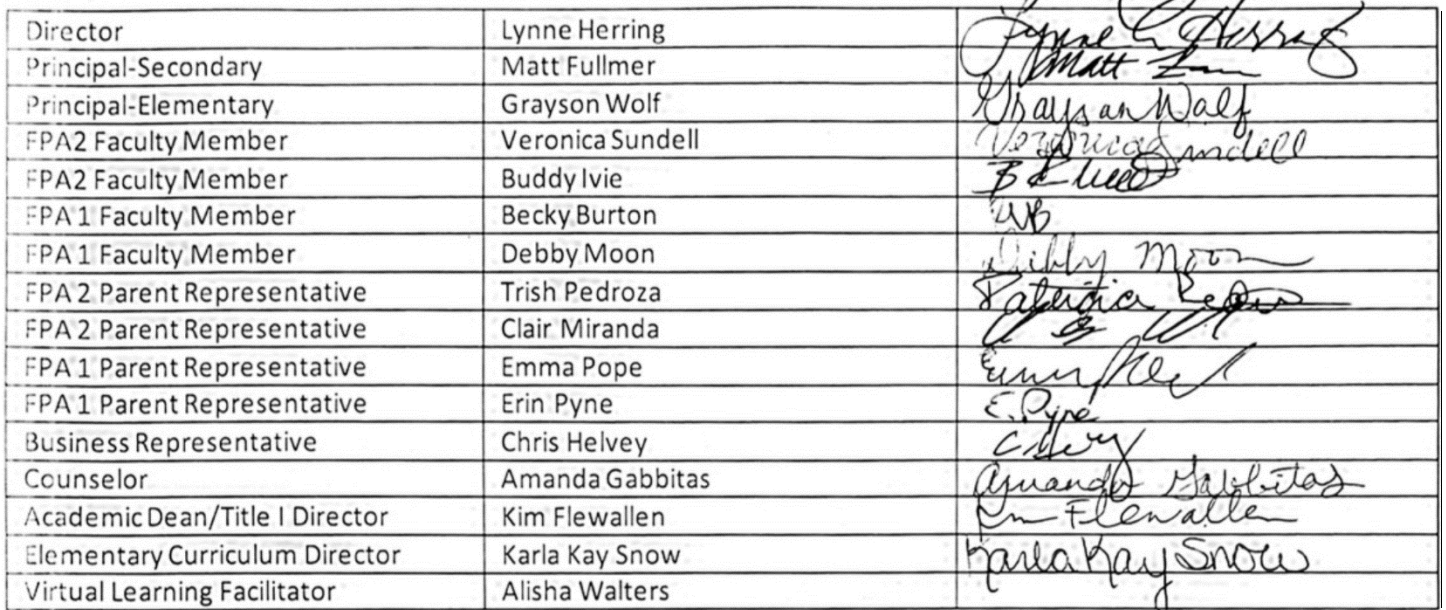 Director Lynne Herring Lynne C Herring
Principal-Secondary Matt Fullmer Matt
Principal-Elementary Grayson Wolf Grayson Wolf
FPA2 Faculty Member Veronica Sundell Veronica Sundell
FPA2 Faculty Member Buddy Ivie B
FPA 1 Faculty Member Becky Burton
FPA 1 Faculty Member Debby Moon Debby Moon
FPA 2 Parent Representative Trish Pedroza Patricia
FPA 2 Parent Representative Clair Miranda
FPA 1 Parent Representative Emma Pope
FPA 1 Parent Representative Erin Pyne E. Pyne
Business Representative Chris Helvey
Counselor Amanda Gabbitas Amanda Gabbitas
Academic Dean/Title I Director Kim Flewallen Kim Flewallen
Elementary Curriculum Director Karla Kay Snow Karla Kay Snow
Virtual Learning Facilitator Alisha Walters